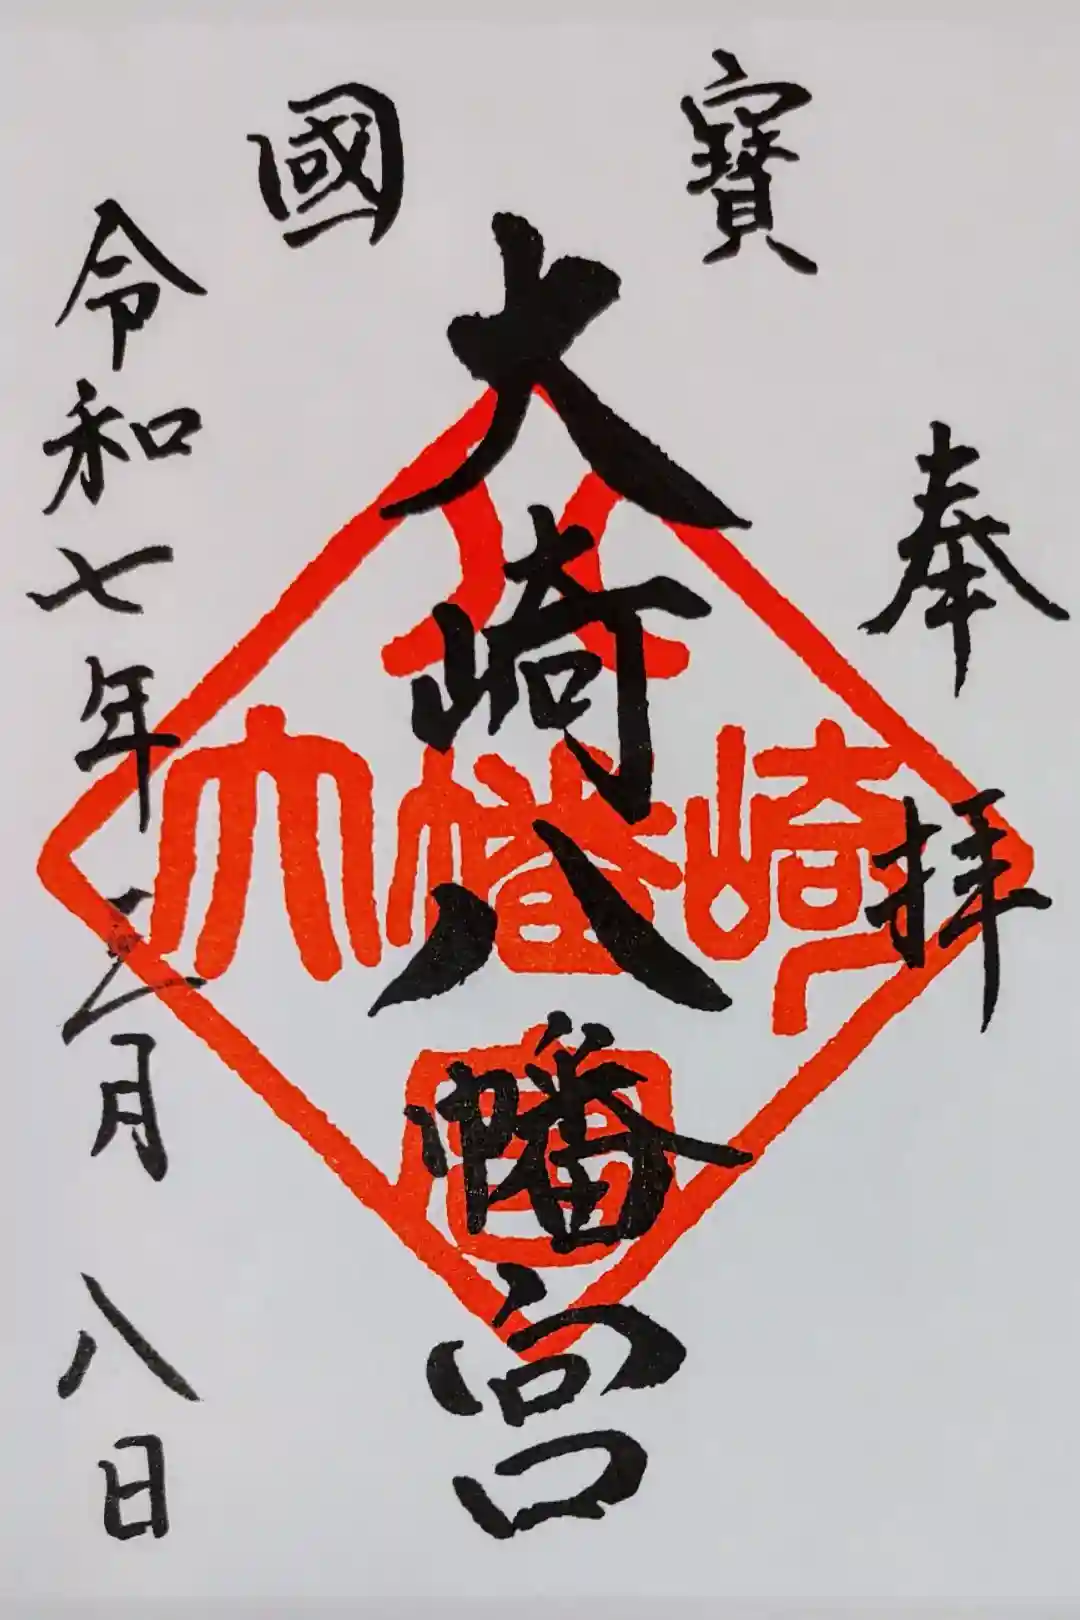 國寶
奉拝
大崎八幡宮
令和七年三月八日
大崎八幡宮